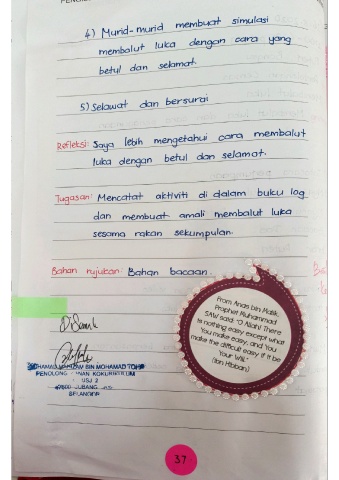 4) Murid-murid membuat simulasi
membalut luka dengan cara yang
betul dan selamat.
5) Selawat dan bersurai
Refleksi: Saya lebih mengetahui cara membalut
luka dengan betul dan selamat.
Tugasan: Mencatat aktiviti di dalam buku log
dan membuat amali membalut luka
sesama rakan sekumpulan.
Bahan rujukan: Bahan bacaan.
From Anas bin Malik,
Prophet Muhammad
SAW said: "O Allah! There
is nothing easy except what
You make easy, and You
make the difficult easy if it be
Your Will."
(Ibn Hibban)
BIN MOHAMAD
PENOLONG KANAN KOKURIKULUM
USJ 2
SUBANG
SELANGOR
37